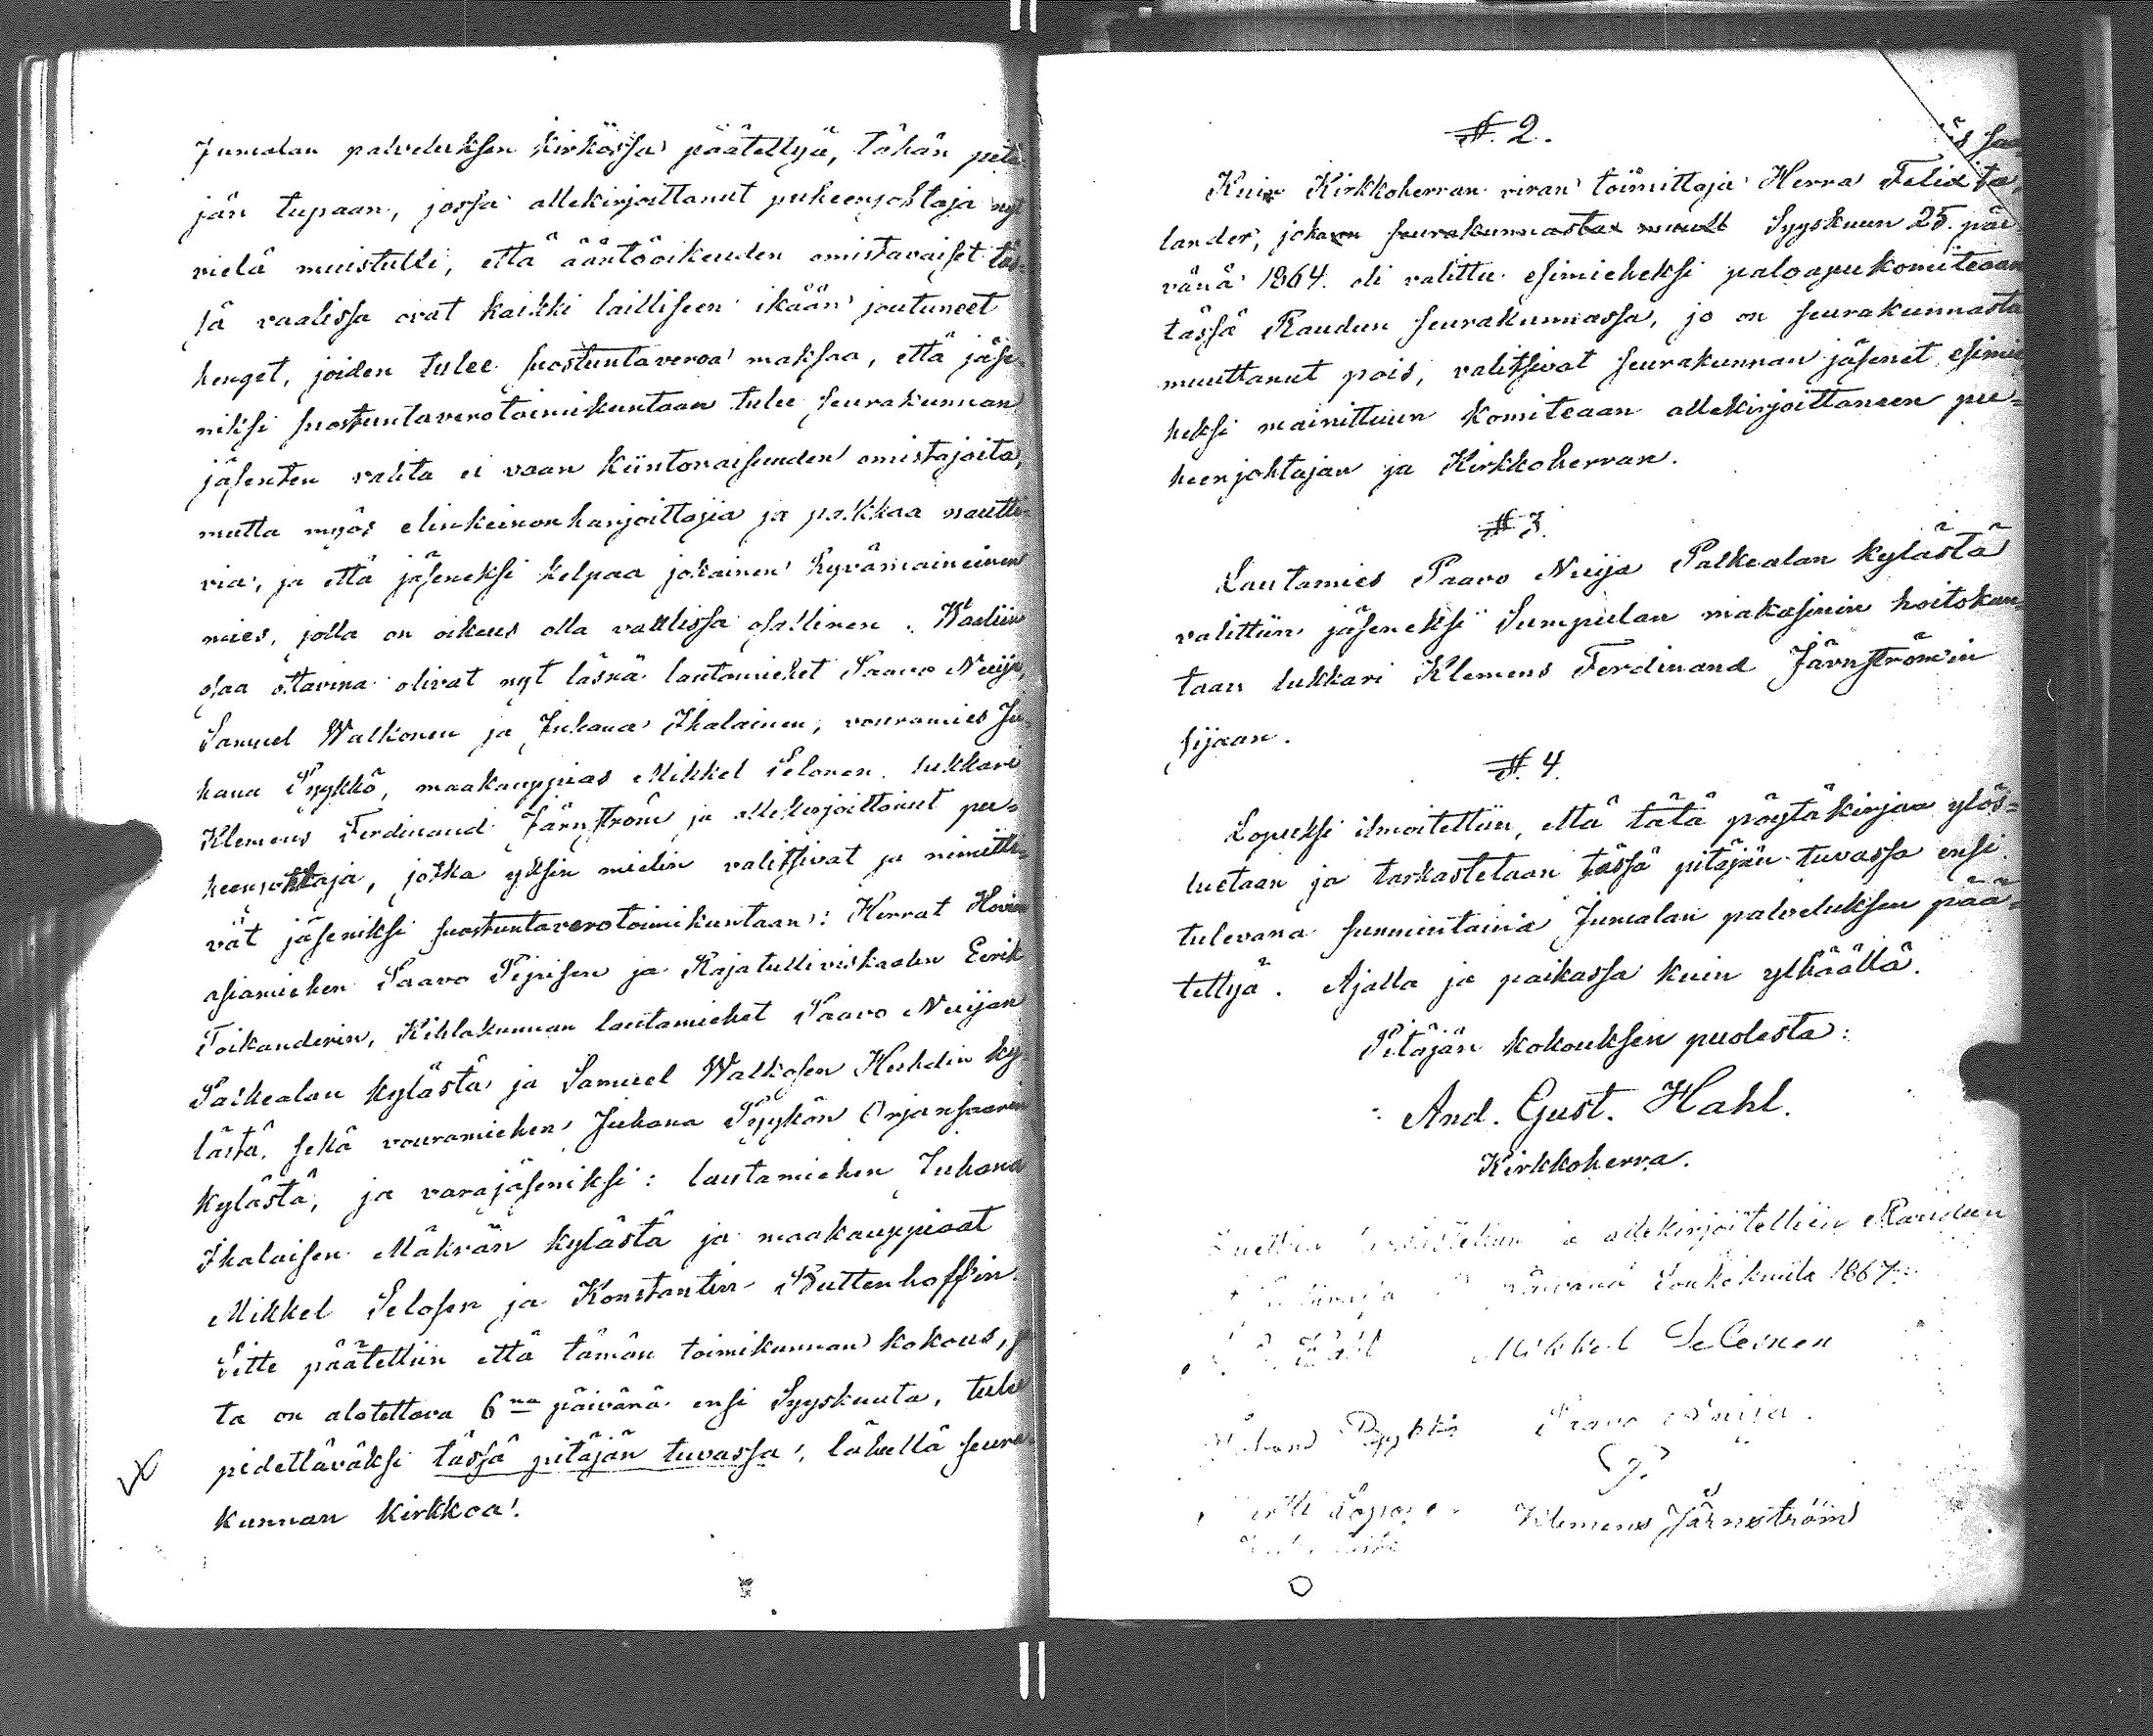 Jumalan palveluksen kirkossa päätettyä, tähän pitä-
jän tupaan, jossa allekirjoittanut puheenjohtaja nyt
vielä muistutti, että ääntöoikeuden omistavaiset täs-
sä vaalissa ovat kaikki lailliseen ikään joutuneet
henget, joiden tulee suostuntaveroa maksaa, että jäse-
niksi suostuntaverotoimikuntaan tulee seurakunnan
jäsenten valita ei vaan kiintonaisuuden omistajoita,
mutta myös elinkeinon harjoittajia ja palkkaa nautti-
via, ja että jäseneksi kelpaa jokainen hyvämaineinen
mies, jolla on oikeus olla vaalissa osallinen. Waaliin
osaa ottavina olivat nyt läsnä lautamiehet Paavo Nuija,
Samuel Walkonen ja Juhana Ihalainen, vouramies Ju-
hana Pyykkö, maakauppias Mikkel Selonen, lukkari
Klemens Ferdinand Järnström ja allekirjoittanut pu-
heenjohtaja, jotka yksin mielin valitsivat ja nimitti-
vät jäseniksi suostuntaverotoimikuntaan: Herrat Hovin
asiamiehen Paavo Pipisen ja Rajatulliviskaalin Eerik
Toikanderin, Kihlakunnan lautamiehet Paavo Nuijan
Palkealan kylästä ja Samuel Walkosen Huhdin ky-
lästä, sekä vouramiehen Juhana Pyykön Orjansaaren
kylästä, ja varajäseniksi: lautamiehen Juhana
Ihalaisen Mäkrän kylästä ja maakauppiaat
Mikkel Selosen ja Konstantin Buttenhoffin.
Sitte päätettiin että tämän toimikunnan kokous, jo-
ta on alotettava 6na päivänä ensi Syyskuuta, tulee
pidettäväksi tässä pitäjän tuvassa, lähellä seura-
kunnan kirkkoa.
§. 2.
Kuin Kirkkoherran viran toimittaja Herra Felix
lander, joka seurakunnasta muutt Syyskuun 25. päi-
vänä 1864. oli valittu esimieheksi paloapukomiteaan
tässä Raudun seurakunnassa, jo on seurakunnasta
muuttanut pois, valitsivat seurakunnan jäsenet esimie-
heksi mainittuun komiteaan allekirjoittaneen pu-
heenjohtajan ja Kirkkoherran.
§. 3.
Lautamies Paavo Nuija Palkealan kylästä
valittiin jäseneksi Sumpulan makasinin hoitokun-
taan lukkari Klemens Ferdinand Järnströmin
sijaan.
§. 4.
Lopuksi ilmoitettiin, että tätä pöytäkirjaa ylös-
luetaan ja tarkastetaan tässä pitäjän tuvassa ensi
tulevana sunnuntaina Jumalan palveluksen pää-
tettyä. Ajalla ja paikassa kuin ylhäällä.
Pitäjän kokouksen puolesta:
And. Gust. Hahl.
Kirkkoherra.
ja allekirjoitettiin Raudun
päivänä Toukokuuta 1867:
Mikkel Seloinen
Juhana Pyykkö Paavo Nuija.
Klemens Järnström